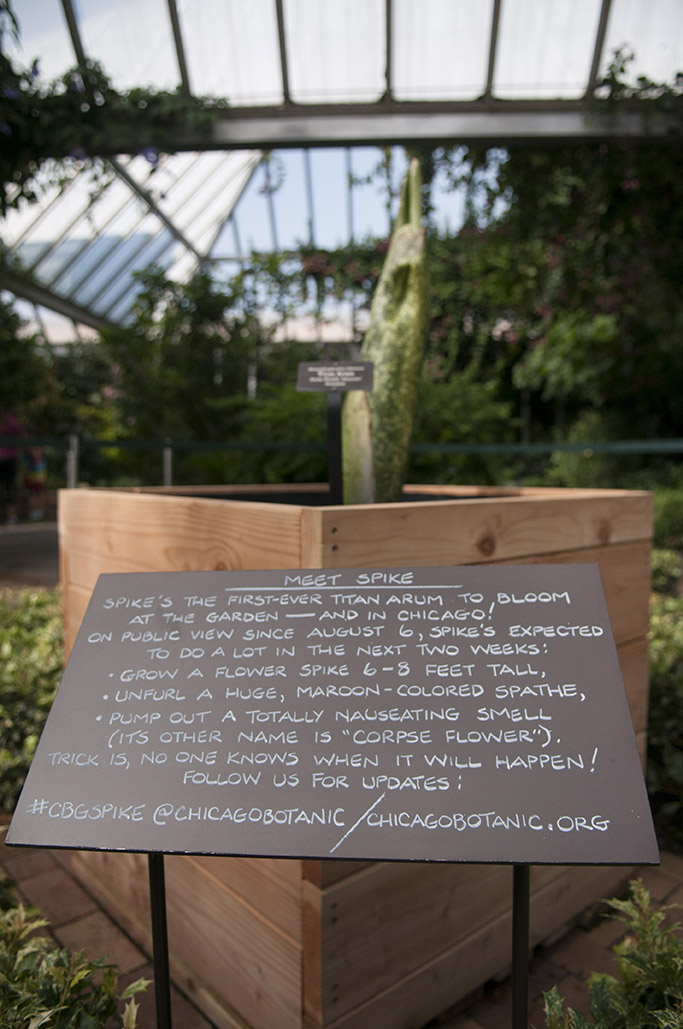 MEET SPIKE
SPIKE'S THE FIRST-EVER TITAN ARUM TO BLOOM
AT THE GARDEN — AND IN CHICAGO!
ON PUBLIC VIEW SINCE AUGUST 6, SPIKE'S EXPECTED
TO DO A LOT IN THE NEXT TWO WEEKS:
• GROW A FLOWER SPIKE 6-8 FEET TALL,
• UNFURL A HUGE, MAROON-COLORED SPATHE,
• PUMP OUT A TOTALLY NAUSEATING SMELL
(IT'S OTHER NAME IS "CORPSE FLOWER").
TRICK IS, NO ONE KNOWS WHEN IT WILL HAPPEN!
FOLLOW US FOR UPDATES:
#CBGSPIKE @CHICAGOBOTANIC / CHICAGOBOTANIC.ORG